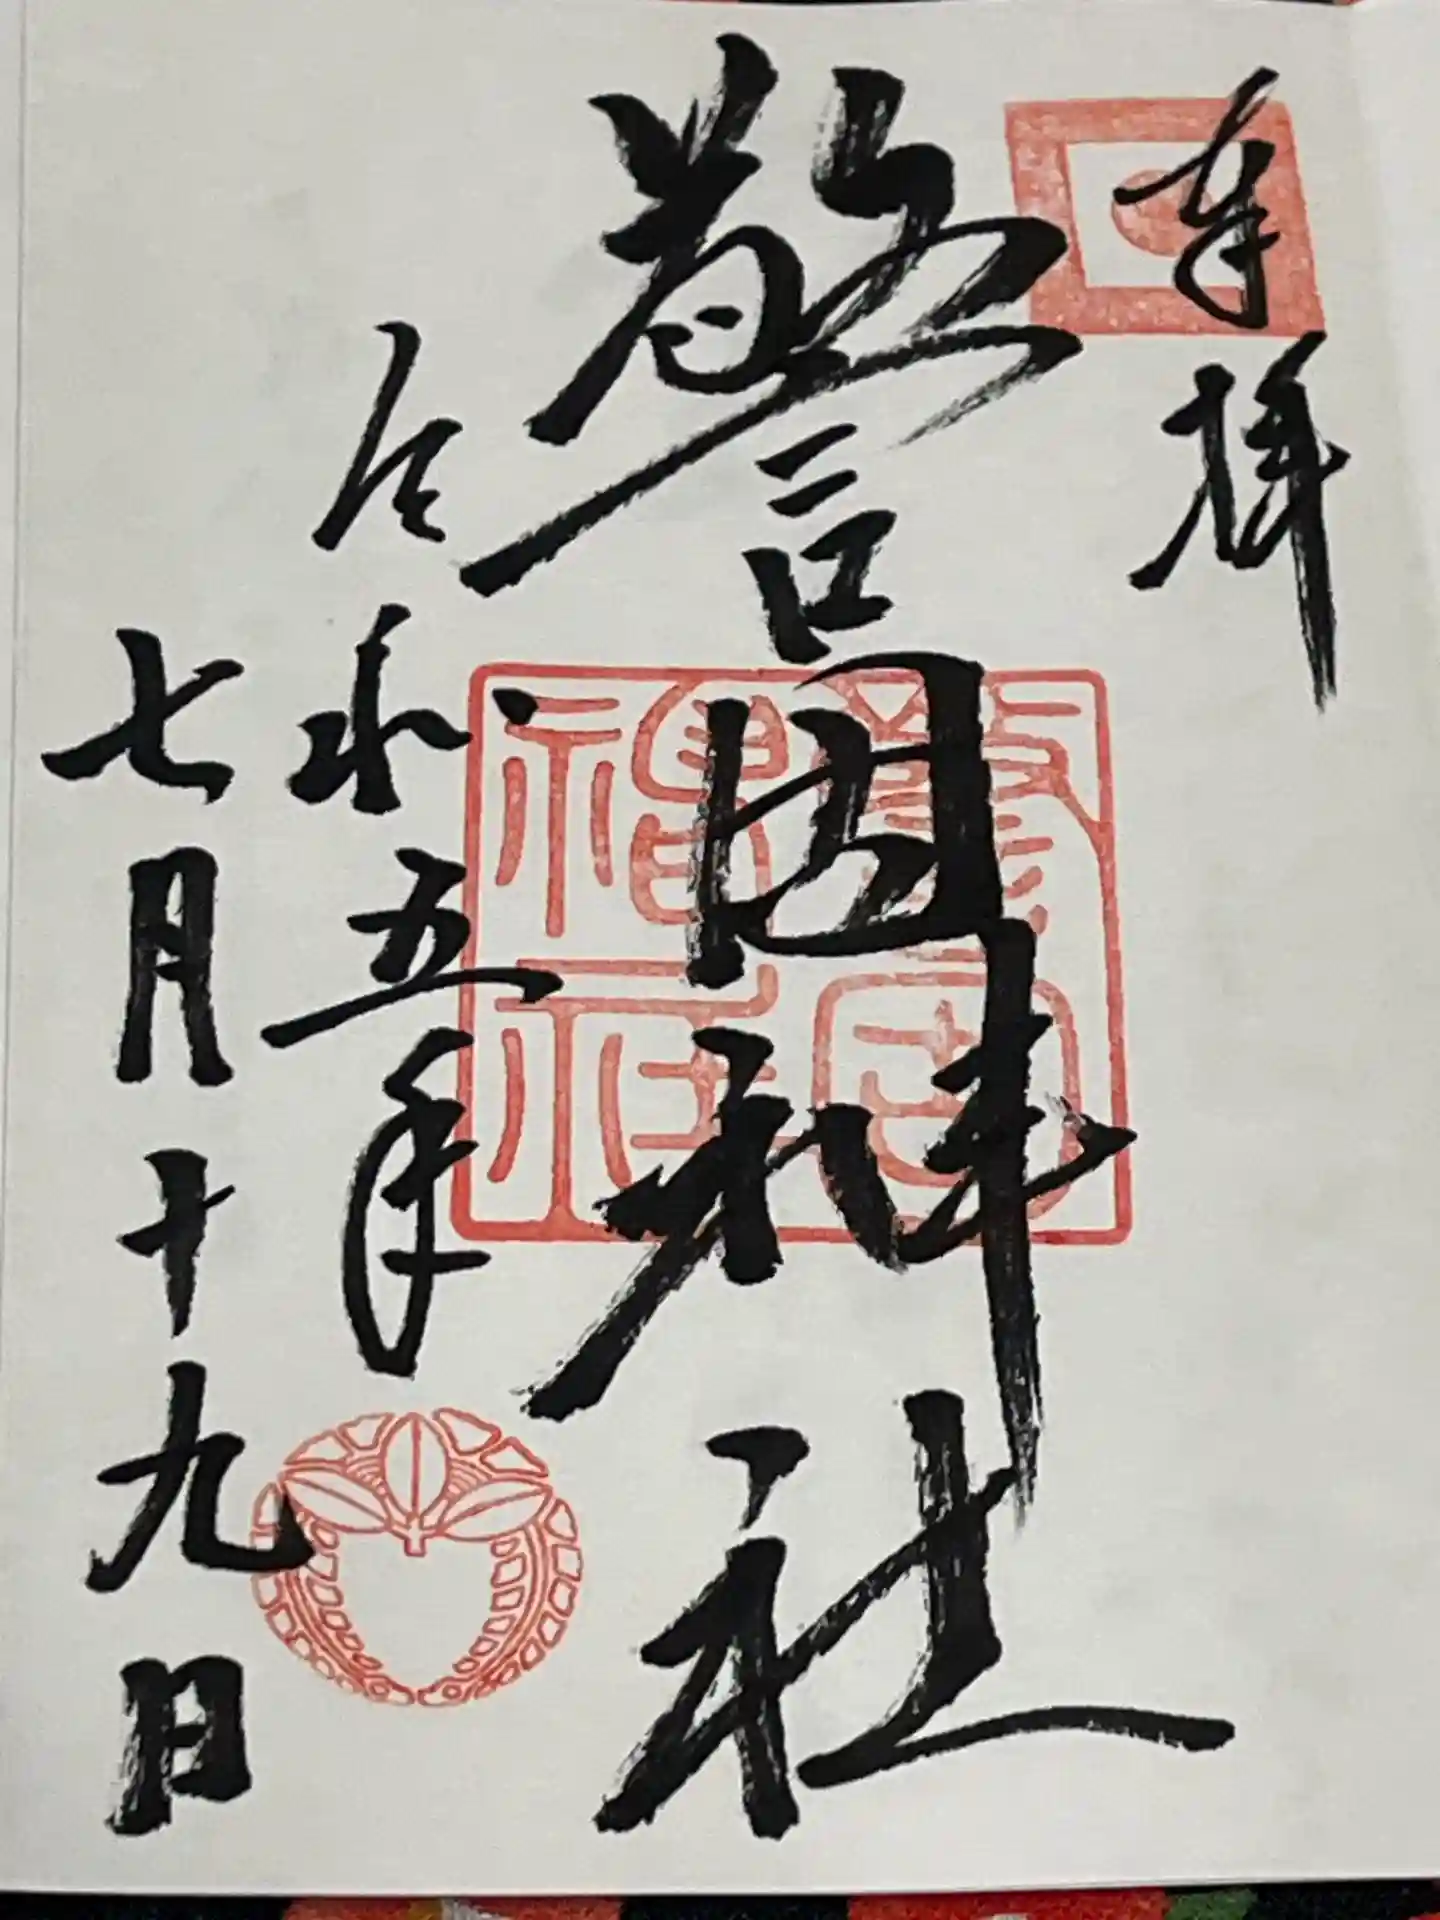 奉拝
警固神社
警固神社
令和五年
七月十九日